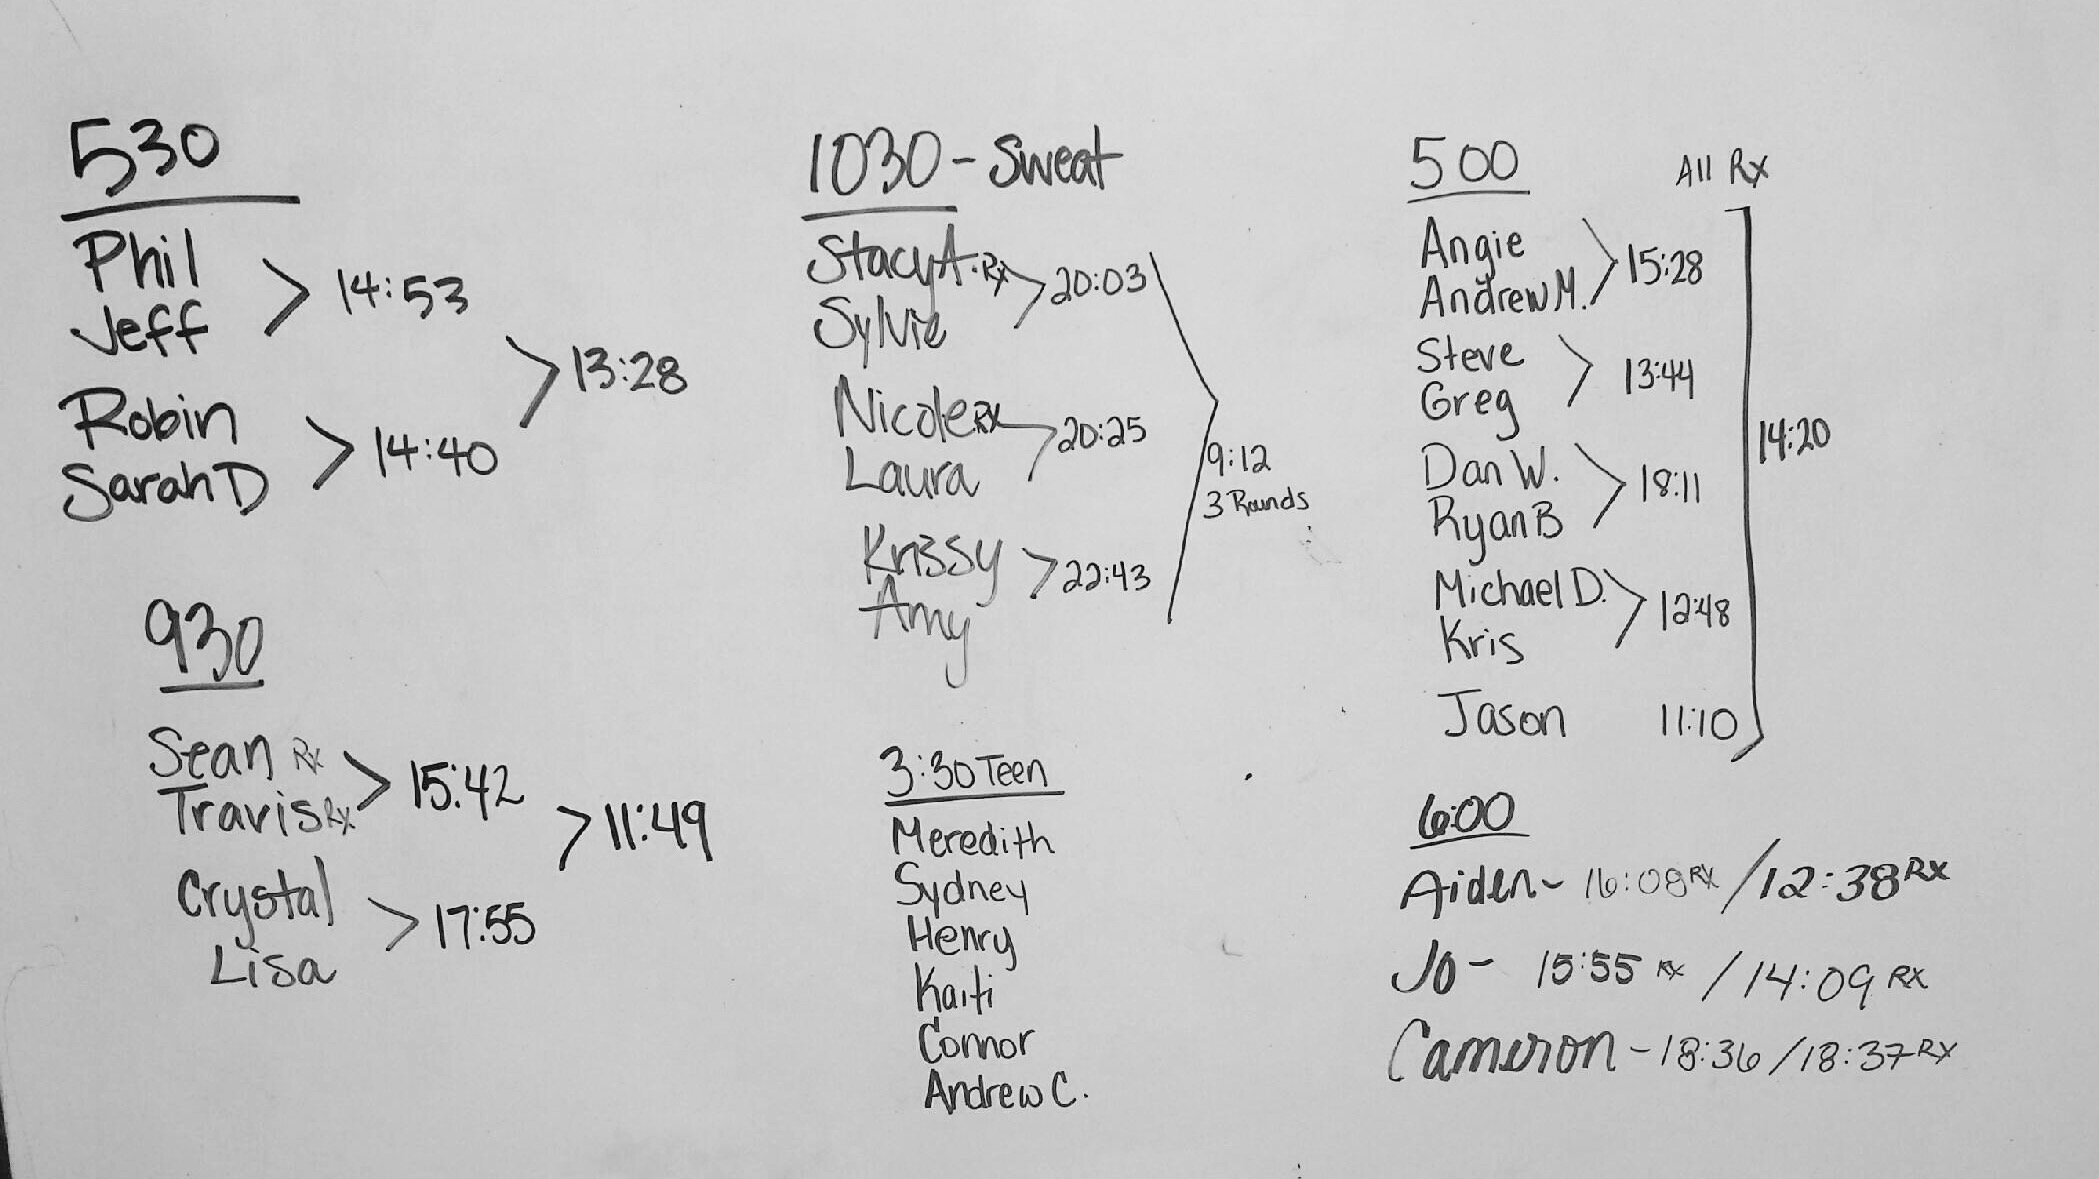 530
Phil
Jeff
> 14:53
Robin
Sarah D
> 14:40
> 13:28
930
Sean Rx
Travis Rx
> 15:42
Crystal
Lisa
> 17:55
> 11:49
1030 - Sweat
Stacy A. Rx
Sylvie
> 20:03
Nicole Rx
Laura
> 20:25
Krissy
Amy
> 22:43
9:12
3 Rounds
3:30 Teen
Meredith
Sydney
Henry
Kaiti
Connor
Andrew C.
500 All Rx
Angie
Andrew M.
> 15:28
Steve
Greg
> 13:44
Dan W.
Ryan B
> 18:11
Michael D.
Kris
> 12:48
Jason 11:10
14:20
6:00
Aiden - 16:08 Rx / 12:38 Rx
Jo - 15:55 Rx / 14:09 Rx
Cameron - 18:36 / 18:37 Rx